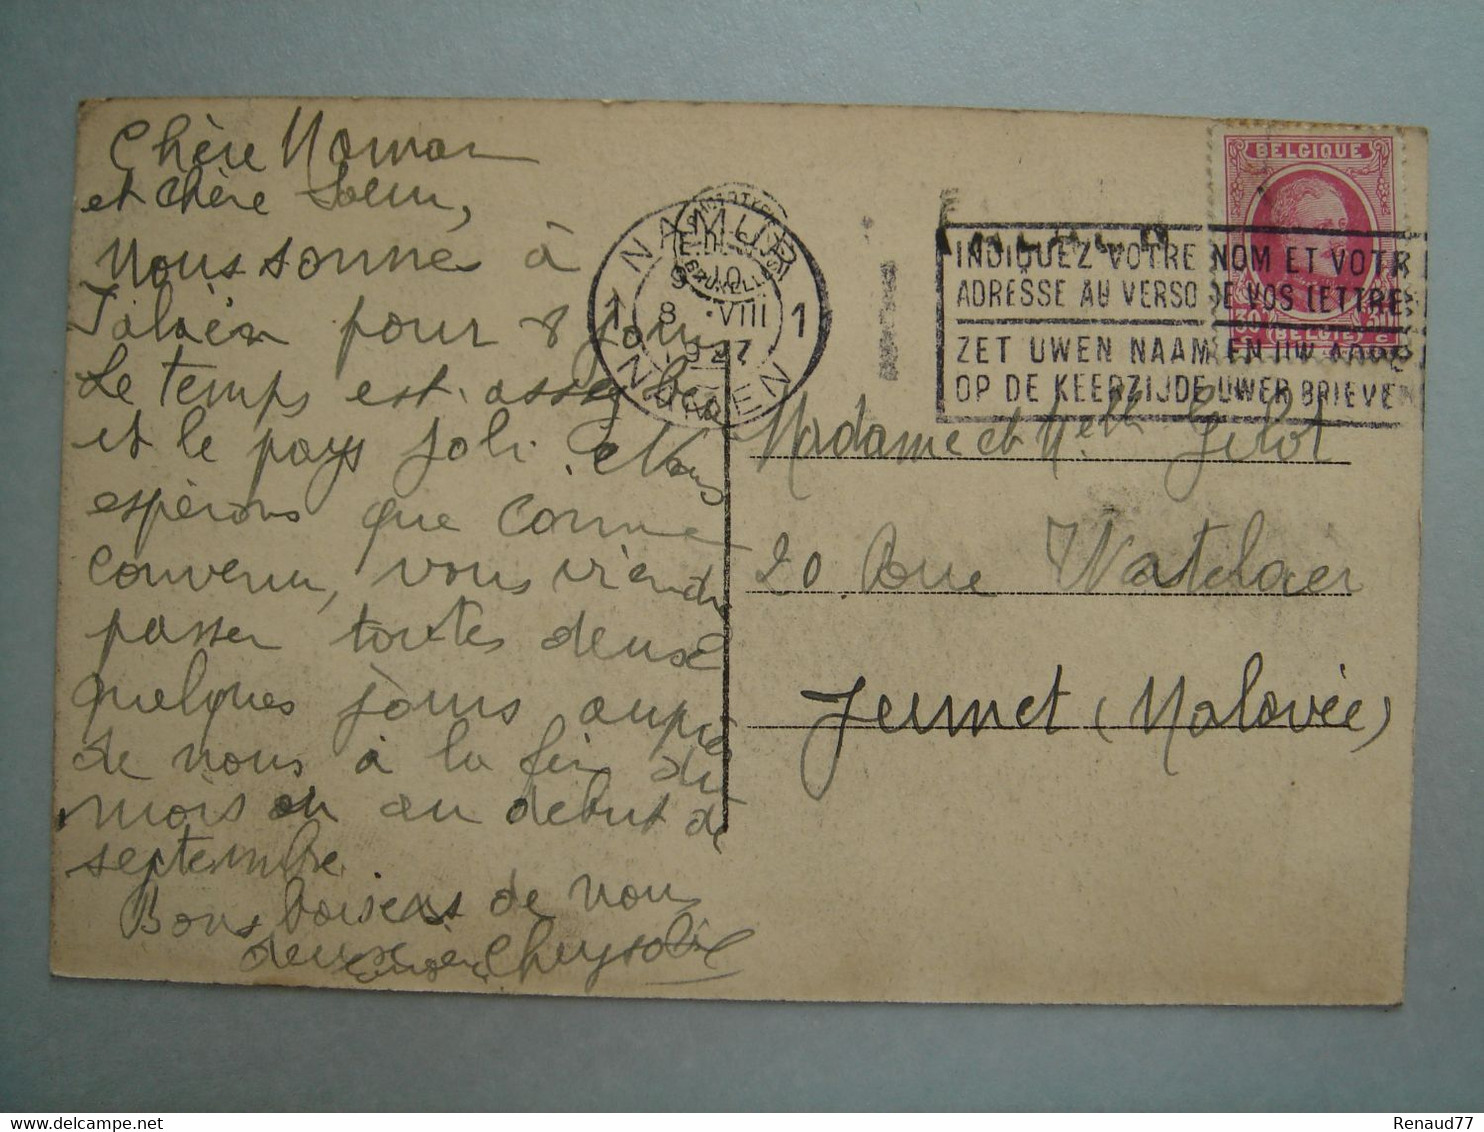 Chère Maman
et chère Soeur,
Nous sommes à
pour 8 jours
Le temps est assez beau
et le pays joli. Nous
espérons que comme
convenu, vous viendrez
passer toutes deux
quelques jours auprès
de nous à la fin du
mois ou au début de
septembre
Bons baisers de nous
deux
Chrysolix
NAMUR
1 1
8 VIII
1927
NAMEN
BELGIQUE
INDIQUEZ VOTRE NOM ET VOTR
ADRESSE AU VERSO DE VOS LETTRE
ZET UWEN NAAM EN UW ADRE
OP DE KEERZIJDE UWER BRIEVEN
Madame et Melle Gilot
20 Rue Wattelaer
Jumet (Malavée)
Renaud77